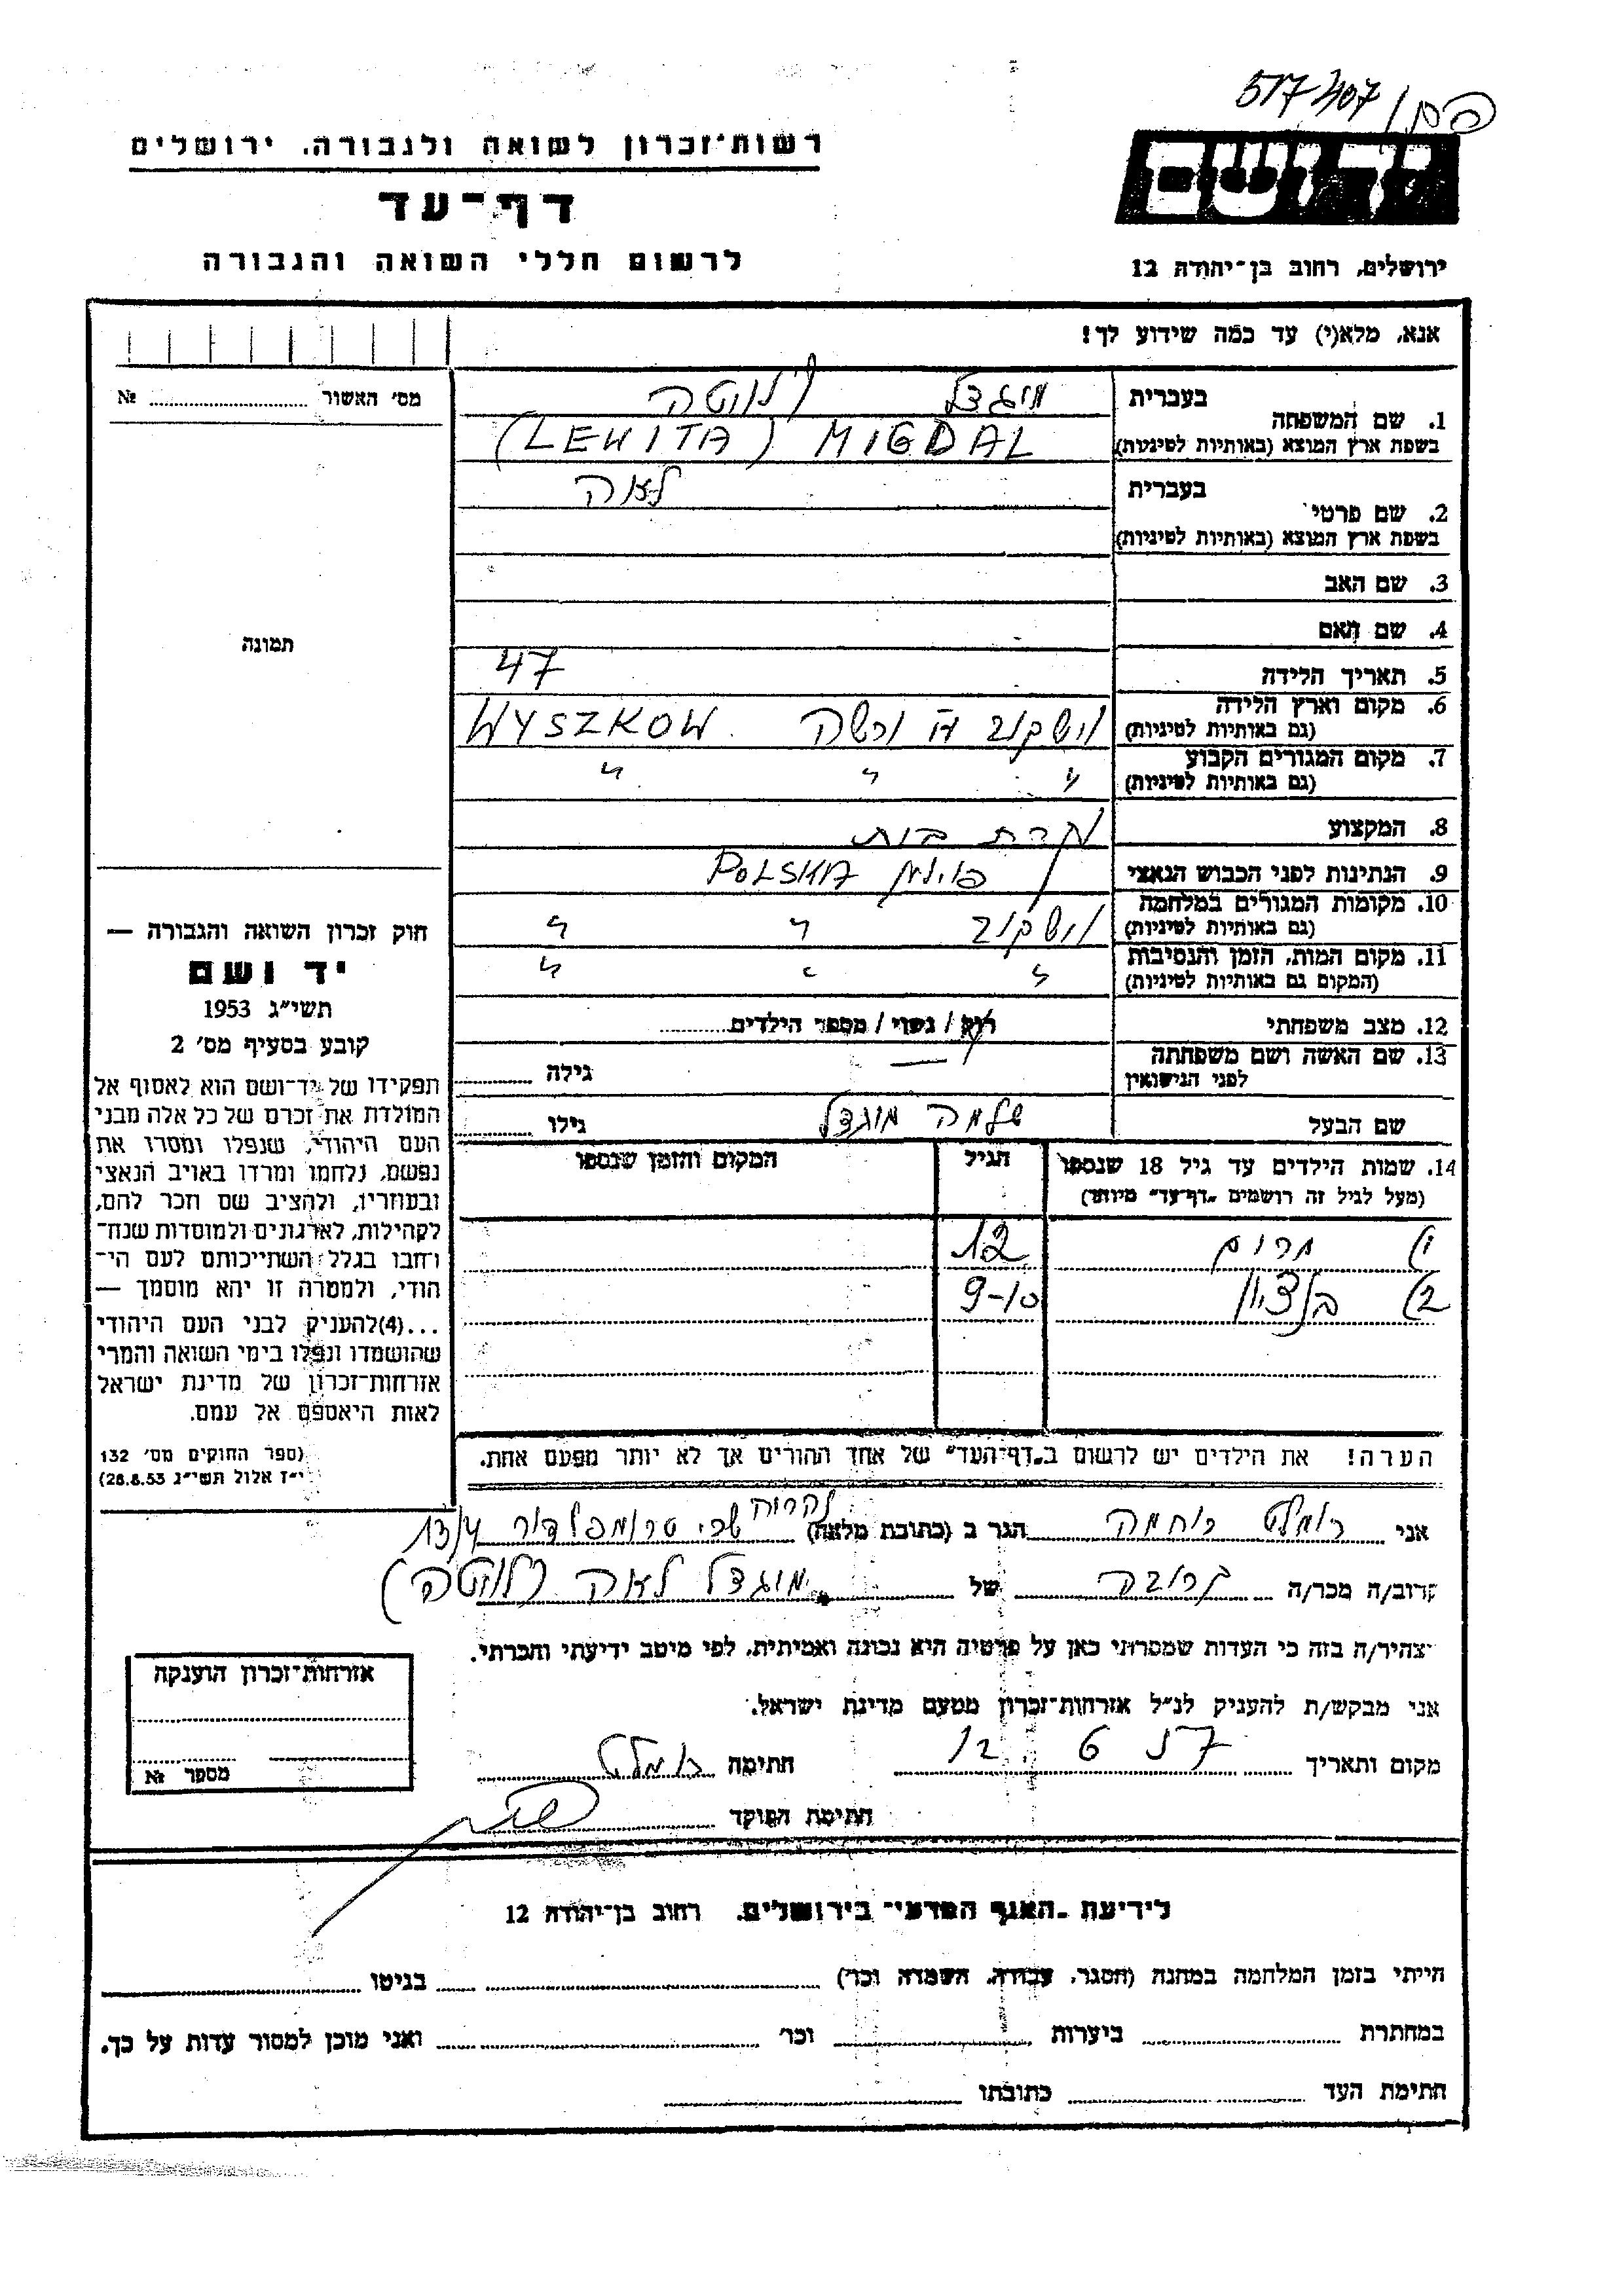 517/407
רשות־זכרון לשואה ולגבורה, ירושלים
יד ושם
דף־עד
לרשום חללי השואה והגבורה
ירושלים, רחוב בן־יהודה 12
אנא, מלא(י) עד כמה שידוע לך!
מס׳ האשור № ........
1. שם המשפחה
בעברית מיגדל לויטה
בשפת ארץ המוצא (באותיות לטיניות) MIGDAL (LEWITA)
2. שם פרטי
בעברית לאה
בשפת ארץ המוצא (באותיות לטיניות)
3. שם האב
4. שם האם
תמונה
5. תאריך הלידה 47
6. מקום וארץ הלידה
(גם באותיות לטיניות) וישקוב ורשה WYSZKOW
7. מקום המגורים הקבוע
(גם באותיות לטיניות) " " "
8. המקצוע עקרת בית
9. הנתינות לפני הכבוש הנאצי פולין POLSKA
10. מקומות המגורים במלחמה
(גם באותיות לטיניות) וישקוב " "
11. מקום המות, הזמן והנסיבות
(המקום גם באותיות לטיניות) " " "
12. מצב משפחתי רוק / נשוי / מספר הילדים........
13. שם האשה ושם משפחתה
לפני הנישואין — גילה ........
שם הבעל שלמה מוגדל גילו ........
14. שמות הילדים עד גיל 18 שנספו הגיל המקום והזמן שנספו
(מעל לגיל זה רושמים „דף־עד" מיוחד)
1) מרים 12
2) בנציון 9-10
הערה! את הילדים יש לרשום ב„דף־העד" של אחד ההורים אך לא יותר מפעם אחת.
חוק זכרון השואה והגבורה —
יד ושם
תשי״ג 1953
קובע בסעיף מס׳ 2
תפקידו של יד־ושם הוא לאסוף אל
המולדת את זכרם של כל אלה מבני
העם היהודי, שנפלו ומסרו את
נפשם, נלחמו ומרדו באויב הנאצי
ובעוזריו, ולהציב שם וזכר להם,
לקהילות, לארגונים ולמוסדות שנח־
רחבו בגלל השתייכותם לעם הי־
הודי, ולמטרה זו יהא מוסמך —
...(4)להעניק לבני העם היהודי
שהושמדו ונפלו בימי השואה והמרי
אזרחות־זכרון של מדינת ישראל
לאות היאספם אל עמם.
(ספר החוקים מס׳ 132
י״ז אלול תשי״ג 28.8.53)
אני רומלט רוחמה הגר ב (כתובת מלאה) טרומפלדור 13/4
קרוב/ה מכר/ה קרובה של מוגדל לאה (לויטה)
מצהיר/ה בזה כי העדות שמסרתי כאן על פרטיה היא נכונה ואמיתית, לפי מיטב ידיעתי והכרתי.
אני מבקש/ת להעניק לנ״ל אזרחות־זכרון מטעם מדינת ישראל.
מקום ותאריך 12 6 57 חתימה רומלט
חתימת הפוקד
אזרחות־זכרון הוענקה
מספר №
לידיעת „האגף המדעי" בירושלים, רחוב בן־יהודה 12
הייתי בזמן המלחמה במחנה (הסגר, עבודה, השמדה וכו׳) ........ בגיטו ........
במחתרת ........ ביערות ........ וכו׳ ........ ואני מוכן למסור עדות על כך.
חתימת העד ........ כתובתו ........